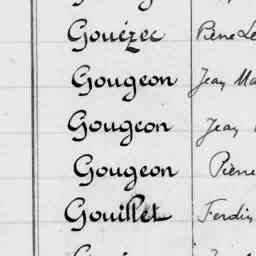 Gouézec
Gougeon Jean Ma
Gougeon Jean
Gougeon Pierre
Gouillet Ferdin